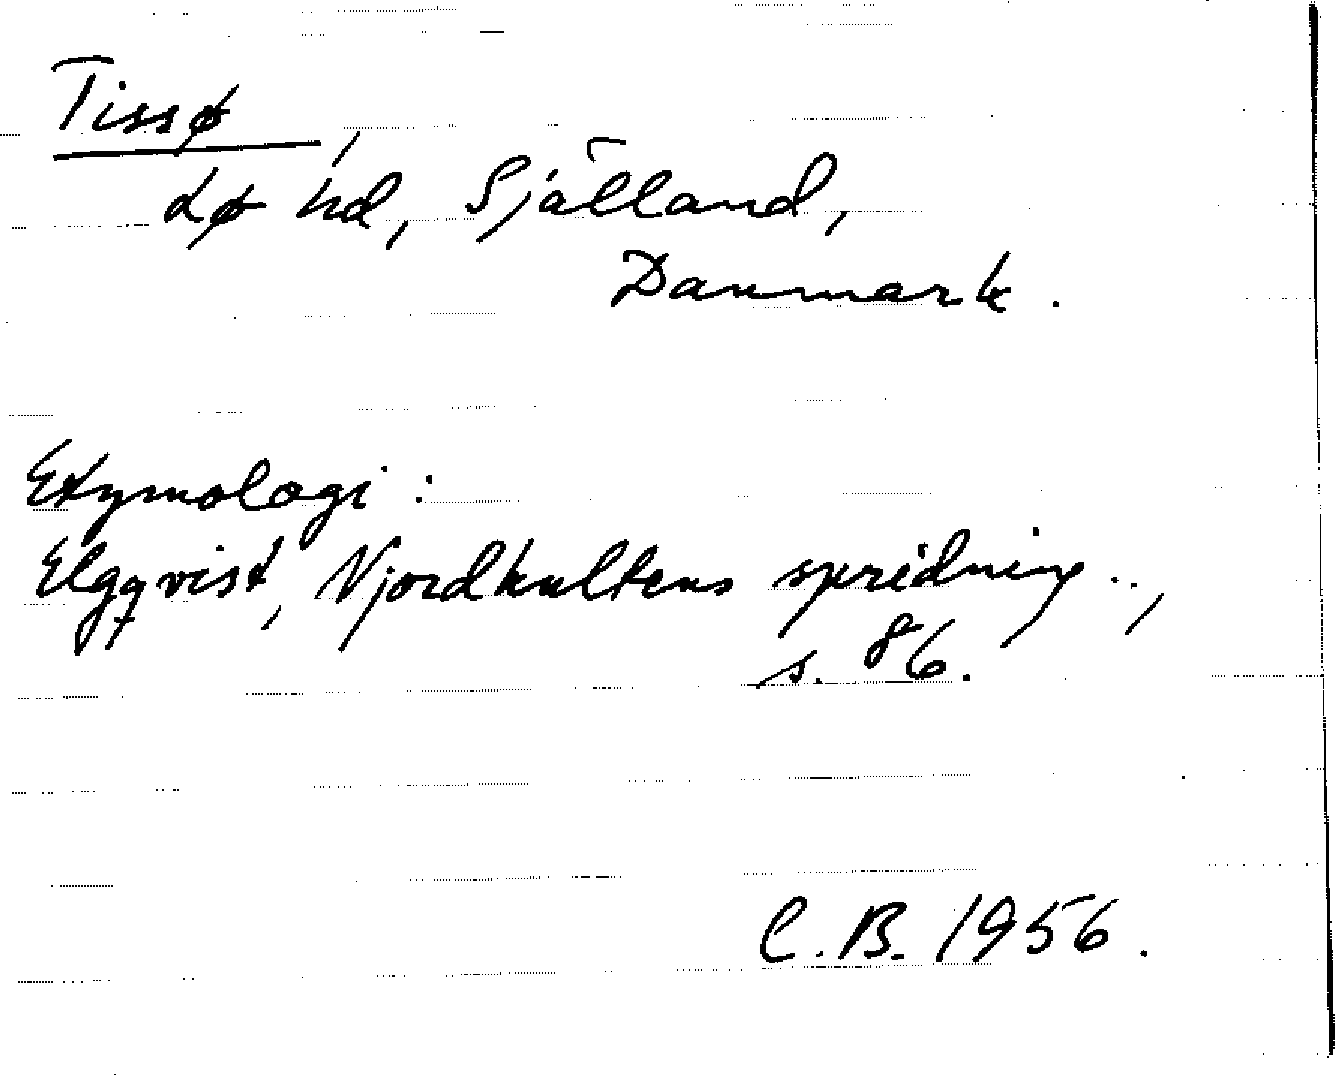 Tissø,
Lø hd, Själland,
Danmark.
Etymologi:
Elgqvist, Njordkultens spridning..,
s. 86.
C. B. 1956.